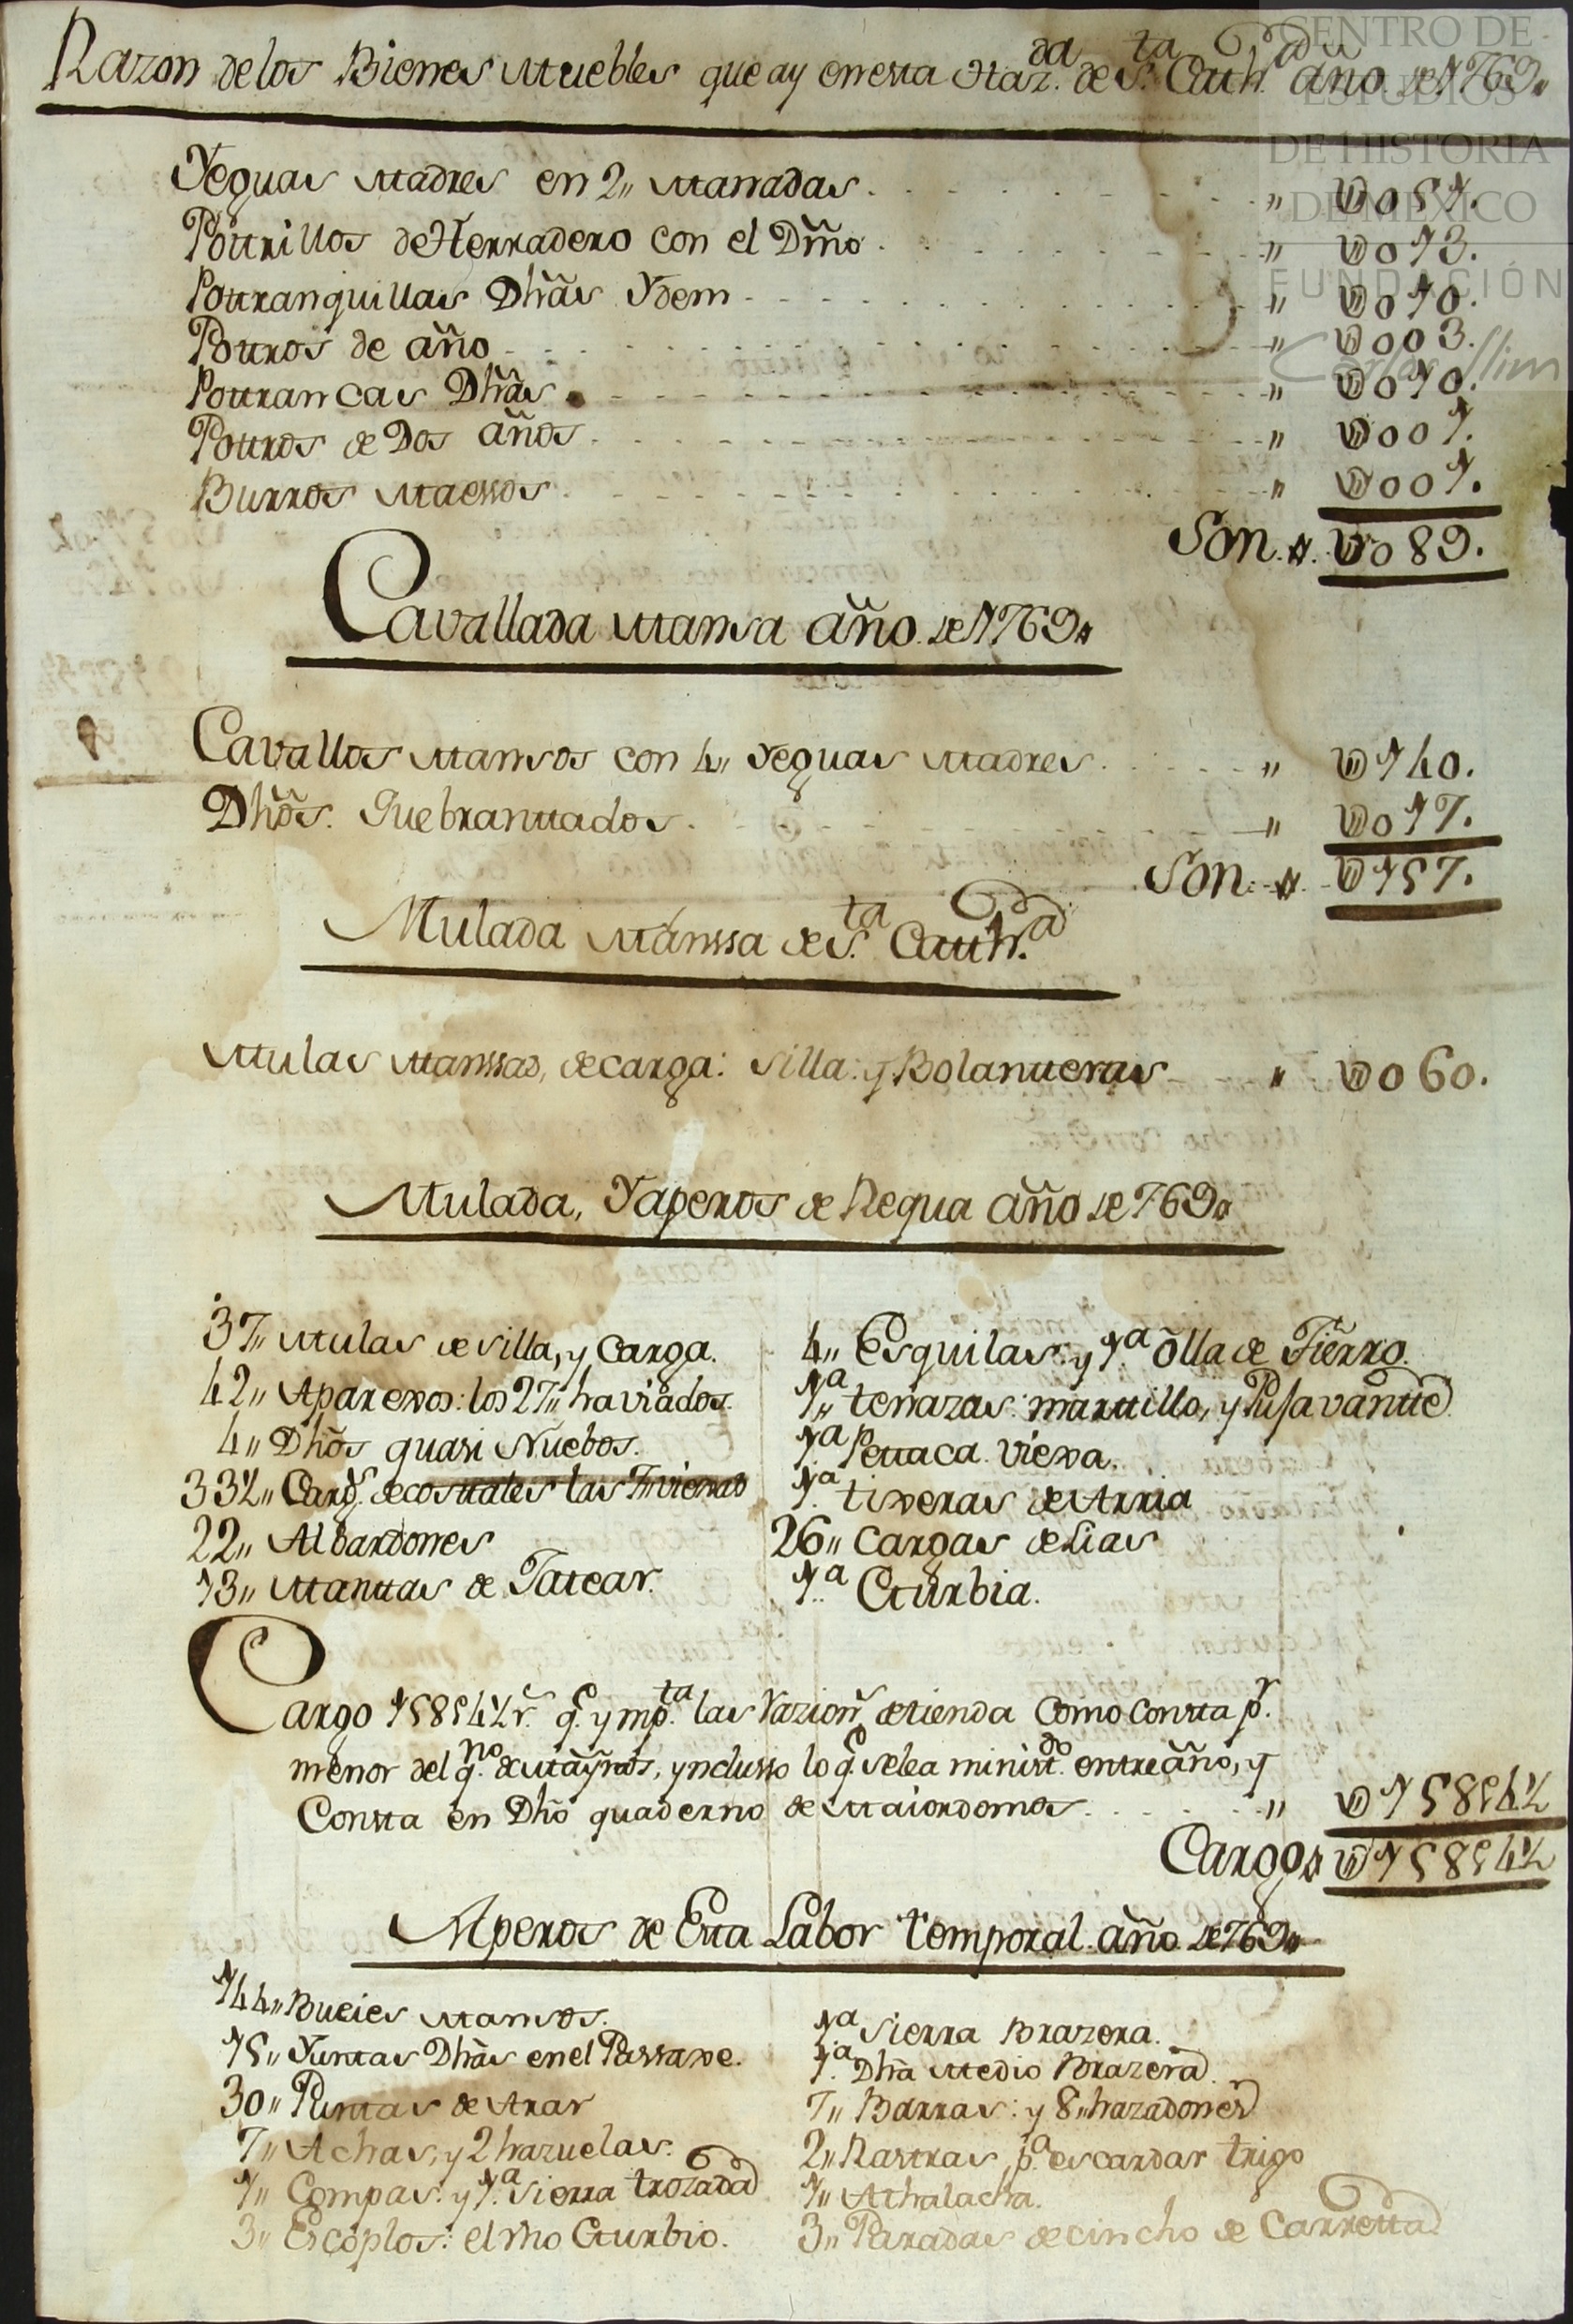 Razon de los Bienes Muebles que ay en esta Haz.da de S.ta Cath.a año de 1769„
CENTRO DE
ESTUDIOS
DE HISTORIA
DE MÉXICO
FUNDACIÓN
Carlos Slim
Yeguas Madres en 2„ Manadas „ U051.
Pottrillos de Herradero con el Dmõ „ U013.
Pottranquillas Dhãs Ydem „ U010.
Pottros de año „ U003.
Pottrancas Dhãs „ U010.
Pottros de Dos años „ U001.
Burros Maessos „ U001.
Son. U089.
Cavallada Mansa año de 1769„
Cavallos Mansos con 4„ Yeguas Madres „ U140.
Dhõs. Quebranttados „ U017.
Son. U157.
Mulada Manssa de S.ta Catth.a
Mulas Manssas, de carga: silla: y Bolantteras „ U060.
Mulada, Yaperos de Requa año de 769„
37„ Mulas de silla, y Carga.
42„ Aparexos: los 27„ haviados.
4„ Dhõs quasi Nuebos.
33½„ Carg.s de costtales las 7„ viexas
22„ Albardones
13„ Manttas de Tatear.
4„ Esquilas: y 1.a olla de Fierro.
1.a tenazas: marttillo, y Pujavantte
1.a Pettaca viexa.
1.a tixeras de Arria
26„ Cargas de Lias
1.a Gurbia.
Cargo 158p4½r.s q.e ymp.ta las Razion.s de tienda como Constta p.r
menor del q.no de Mayr̃os, yncluso lo q.e se le a minist.do entre año, y
Constta en Dhõ quaderno de Maiordomos „ U158p4½
Cargo U158p4½
Aperos de Esta Labor temporal año de 769„
144„ Bueies Mansos.
15„ Yuntas Dhãs en el Passaxe.
30„ Puntas de Arar
7„ Achas, y 2 hazuelas.
1„ Compas: y 1.a Sierra trozada
3„ Escoplos: el Vno Gurbio.
1.a Sierra Brazera.
1.a Dhã Medio Brazera.
7„ Barras: y 8„ hazadones
2„ Rastras, p.a escardar trigo
1„ Athalacha.
3„ Paradas de cincho de Carretta